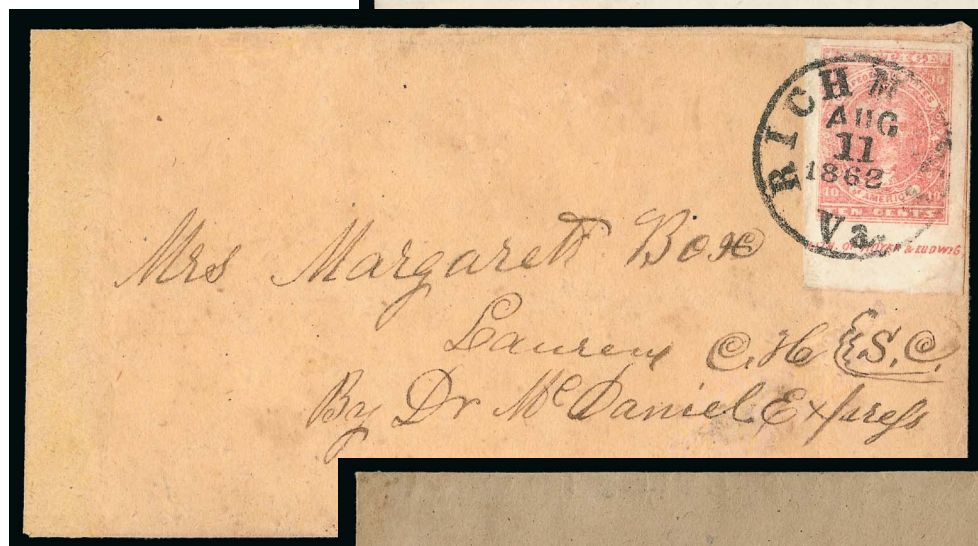 RICHM
AUG
11
1862
Va.
TEN CENTS
OF AMERICA
OF HOYER & LUDWIG
Mrs Margarett Boxe
Laurens C. H. S.C.
By Dr McDaniel Express